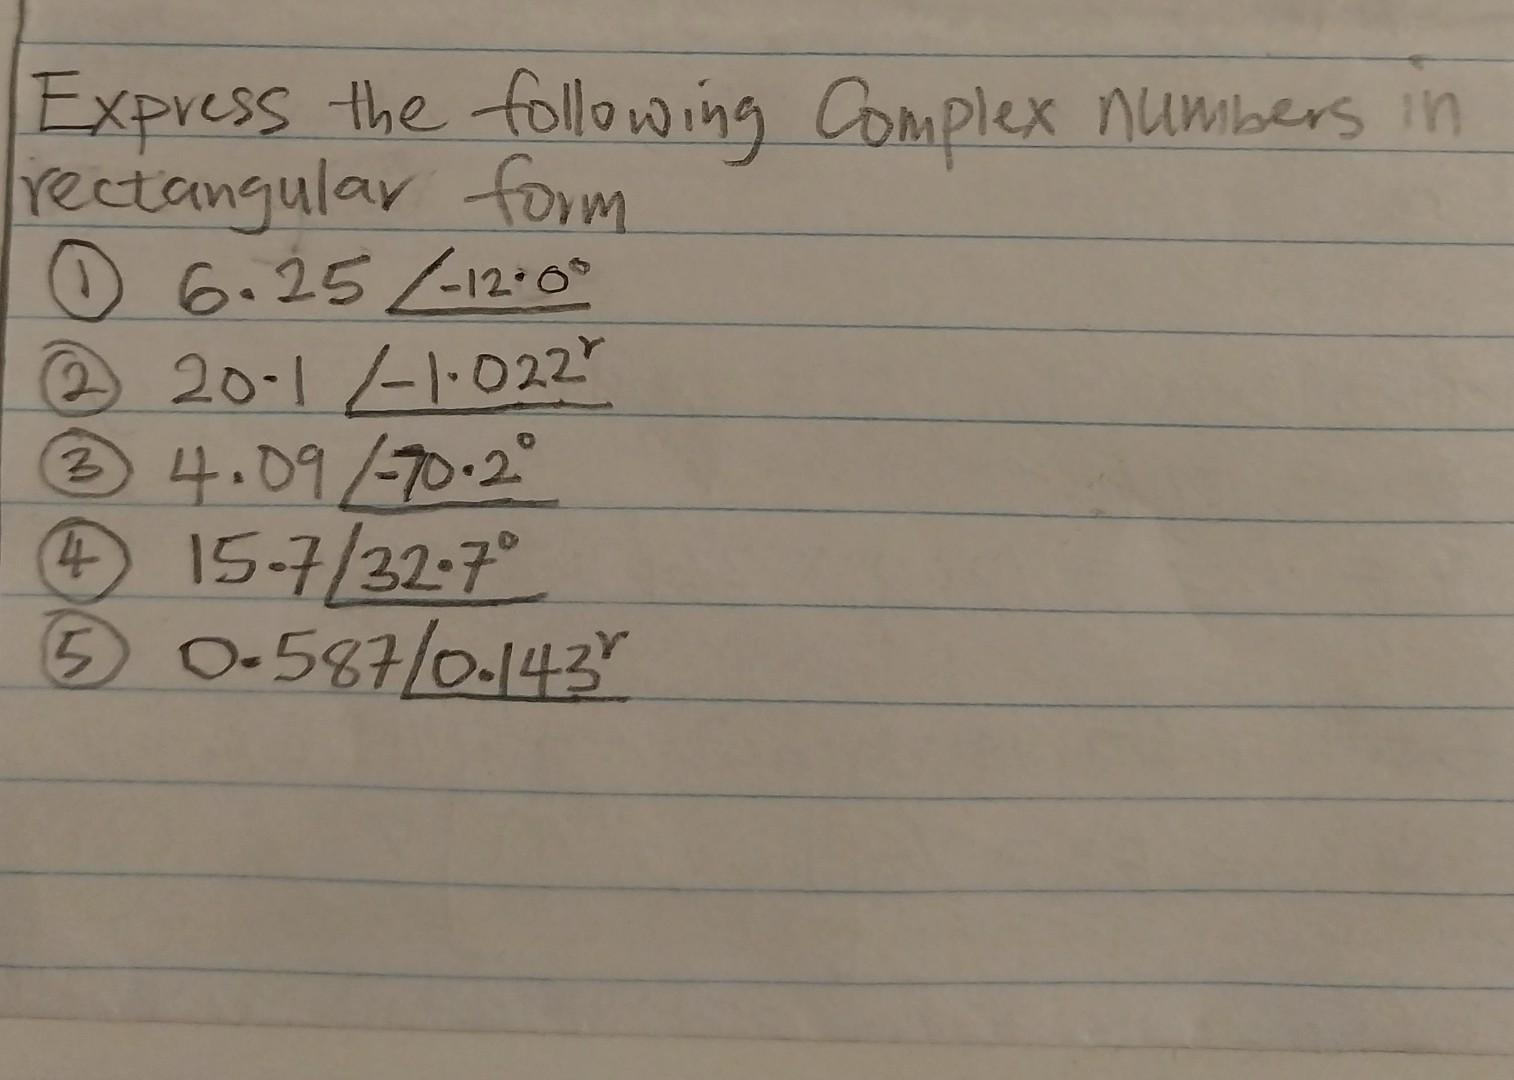 Express the following Complex numbers in
rectangular form
① 6.25 /-12.0°
② 20.1 /-1.022ʳ
③ 4.09 /-70.2°
④ 15.7 /32.7°
⑤ 0.587 /0.143ʳ